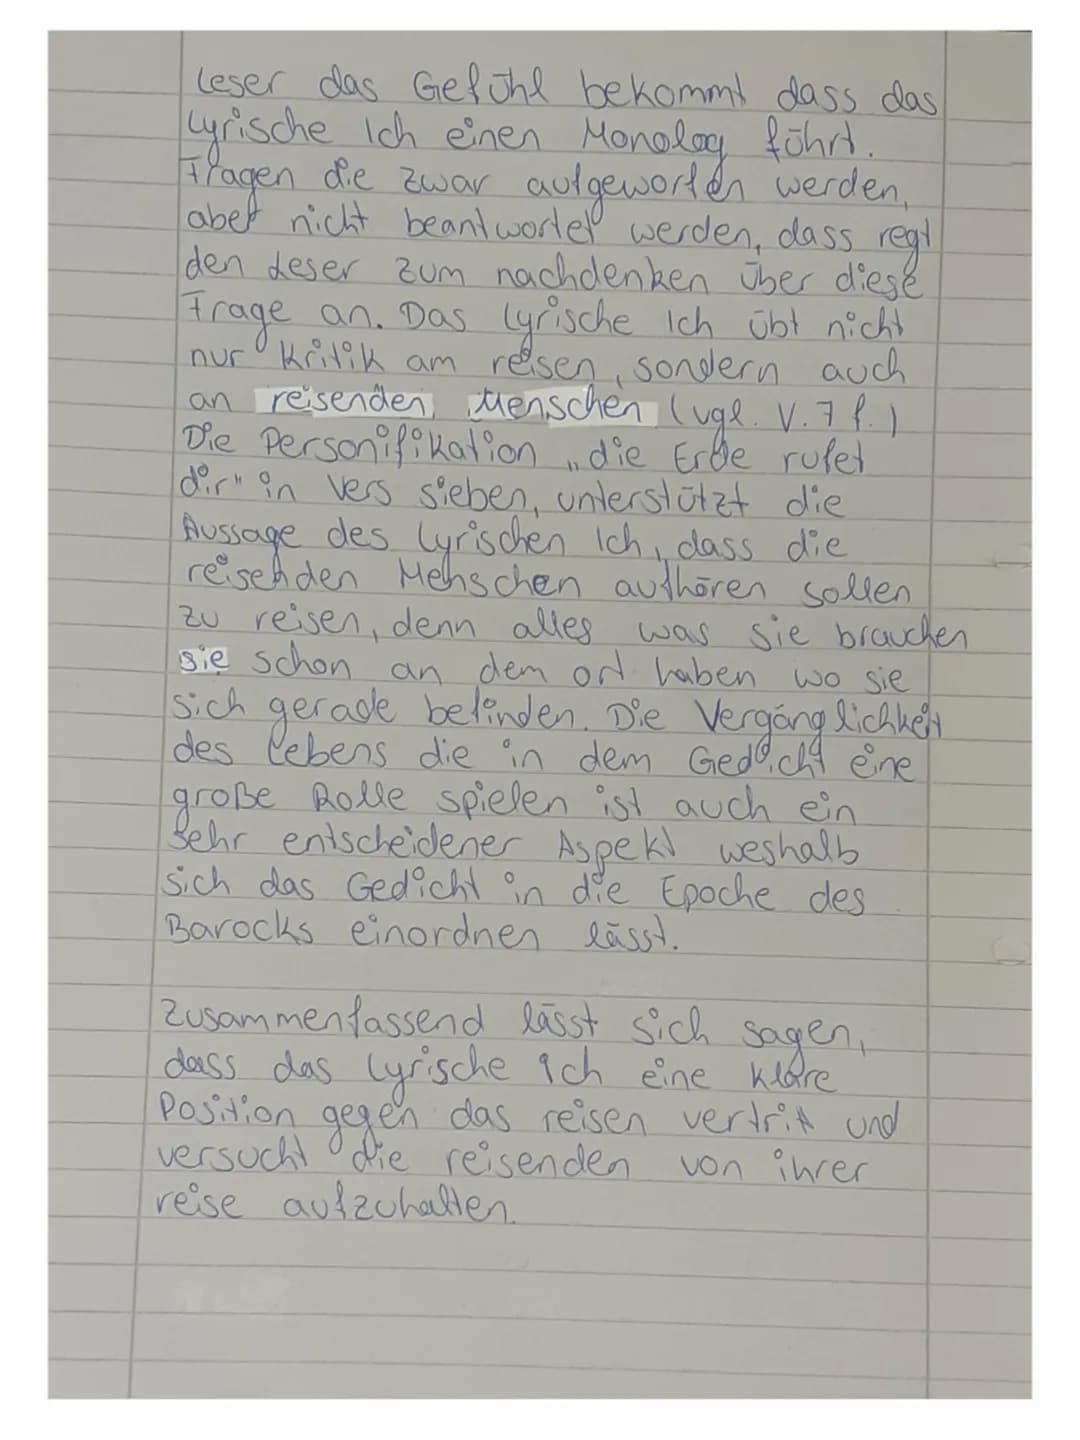 Leser das Gefühl bekommt dass das
lyrische Ich einen Monolog führt.
Fragen die zwar aufgeworfen werden,
aber nicht beantwortet werden, dass regt
den Leser zum nachdenken über diese
Frage an. Das lyrische Ich übt nicht
nur Kritik am reisen, sondern auch
an reisenden Menschen (vgl. V. 7 f.)
Die Personifikation „die Erde rufet
dir" in Vers sieben, unterstützt die
Aussage des lyrischen Ich, dass die
reisenden Menschen aufhören sollen
zu reisen, denn alles was sie brauchen
sie schon an dem ort haben wo sie
sich gerade befinden. Die Vergänglichkeit
des lebens die in dem Gedicht eine
große Rolle spielen ist auch ein
sehr entscheidener Aspekt weshalb
sich das Gedicht in die Epoche des
Barocks einordnen lässt.
Zusammenfassend lässt sich sagen,
dass das lyrische Ich eine klare
Position gegen das reisen vertritt und
versucht die reisenden von ihrer
reise aufzuhalten.